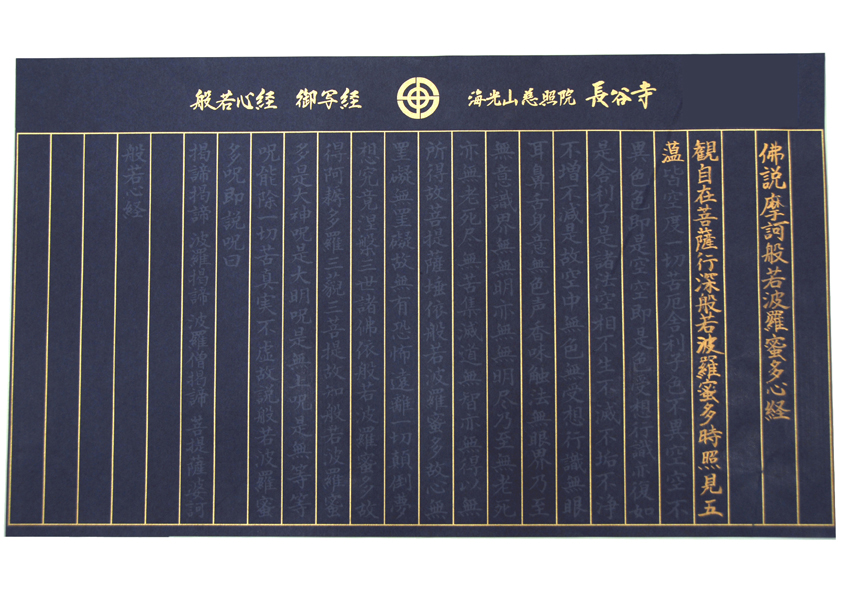 般若心経 御写経 海光山慈照院 長谷寺
佛説摩訶般若波羅蜜多心経
観自在菩薩行深般若波羅蜜多時照見五
蘊皆空度一切苦厄舎利子色不異空空不
異色色即是空空即是色受想行識亦復如
是舎利子是諸法空相不生不滅不垢不浄
不増不減是故空中無色無受想行識無眼
耳鼻舌身意無色声香味触法無眼界乃至
無意識界無無明亦無無明尽乃至無老死
亦無老死尽無苦集滅道無智亦無得以無
所得故菩提薩埵依般若波羅蜜多故心無
罣礙無罣礙故無有恐怖遠離一切顛倒夢
想究竟涅槃三世諸佛依般若波羅蜜多故
得阿耨多羅三藐三菩提故知般若波羅蜜
多是大神呪是大明呪是無上呪是無等等
呪能除一切苦真実不虚故説般若波羅蜜
多呪即説呪曰
掲諦掲諦 波羅掲諦 波羅僧掲諦 菩提薩婆訶
般若心経